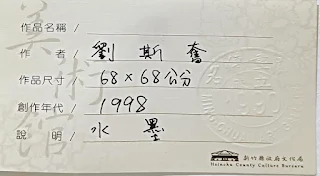 作品名稱 /
作者 / 劉斯奮
作品尺寸 / 68×68公分
創作年代 / 1998
說明 / 水墨
美術館
新竹縣政府文化局
Hsinchu County Culture Bureau